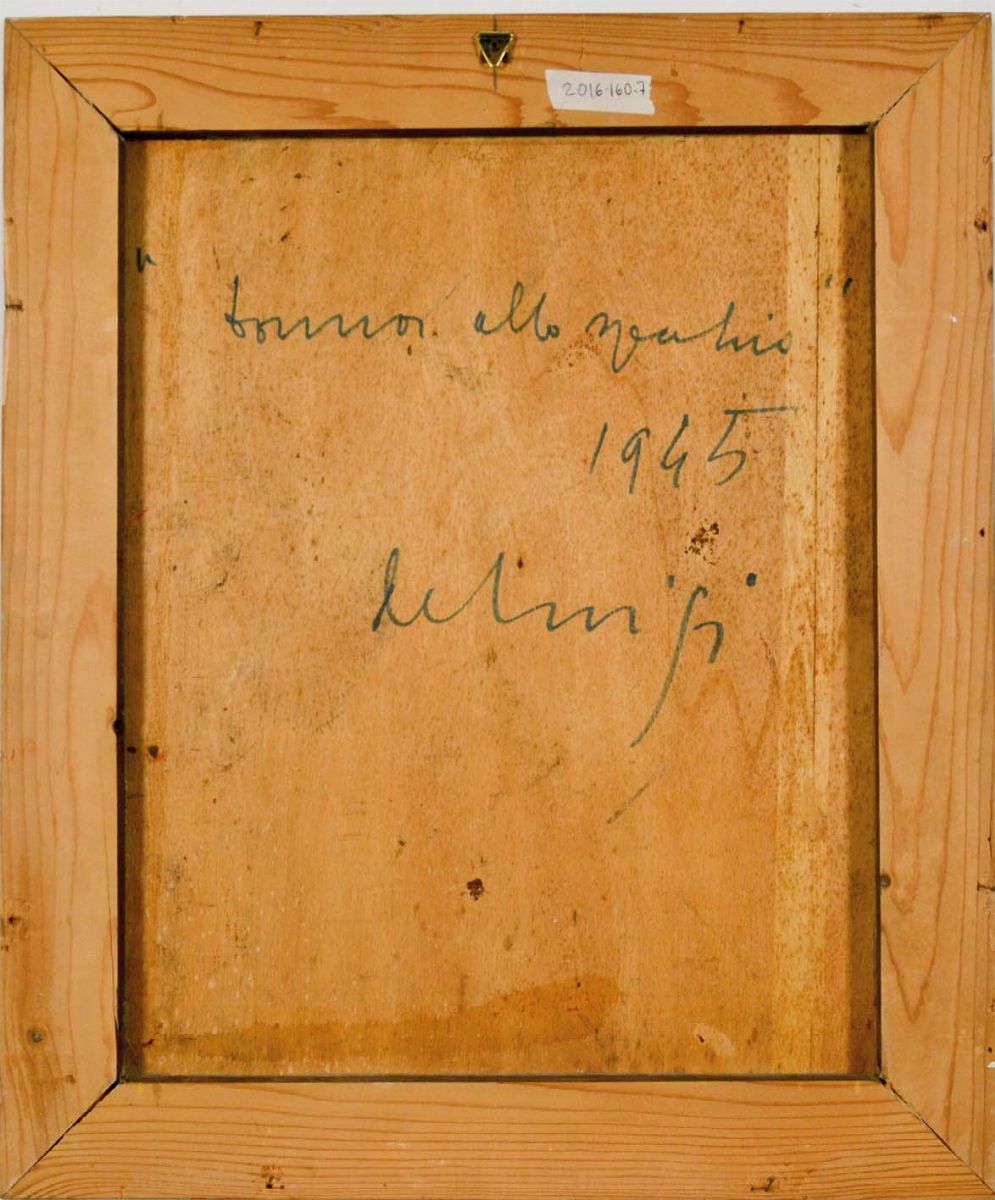 2016-160.7
"donna allo specchio"
1945
deluigi